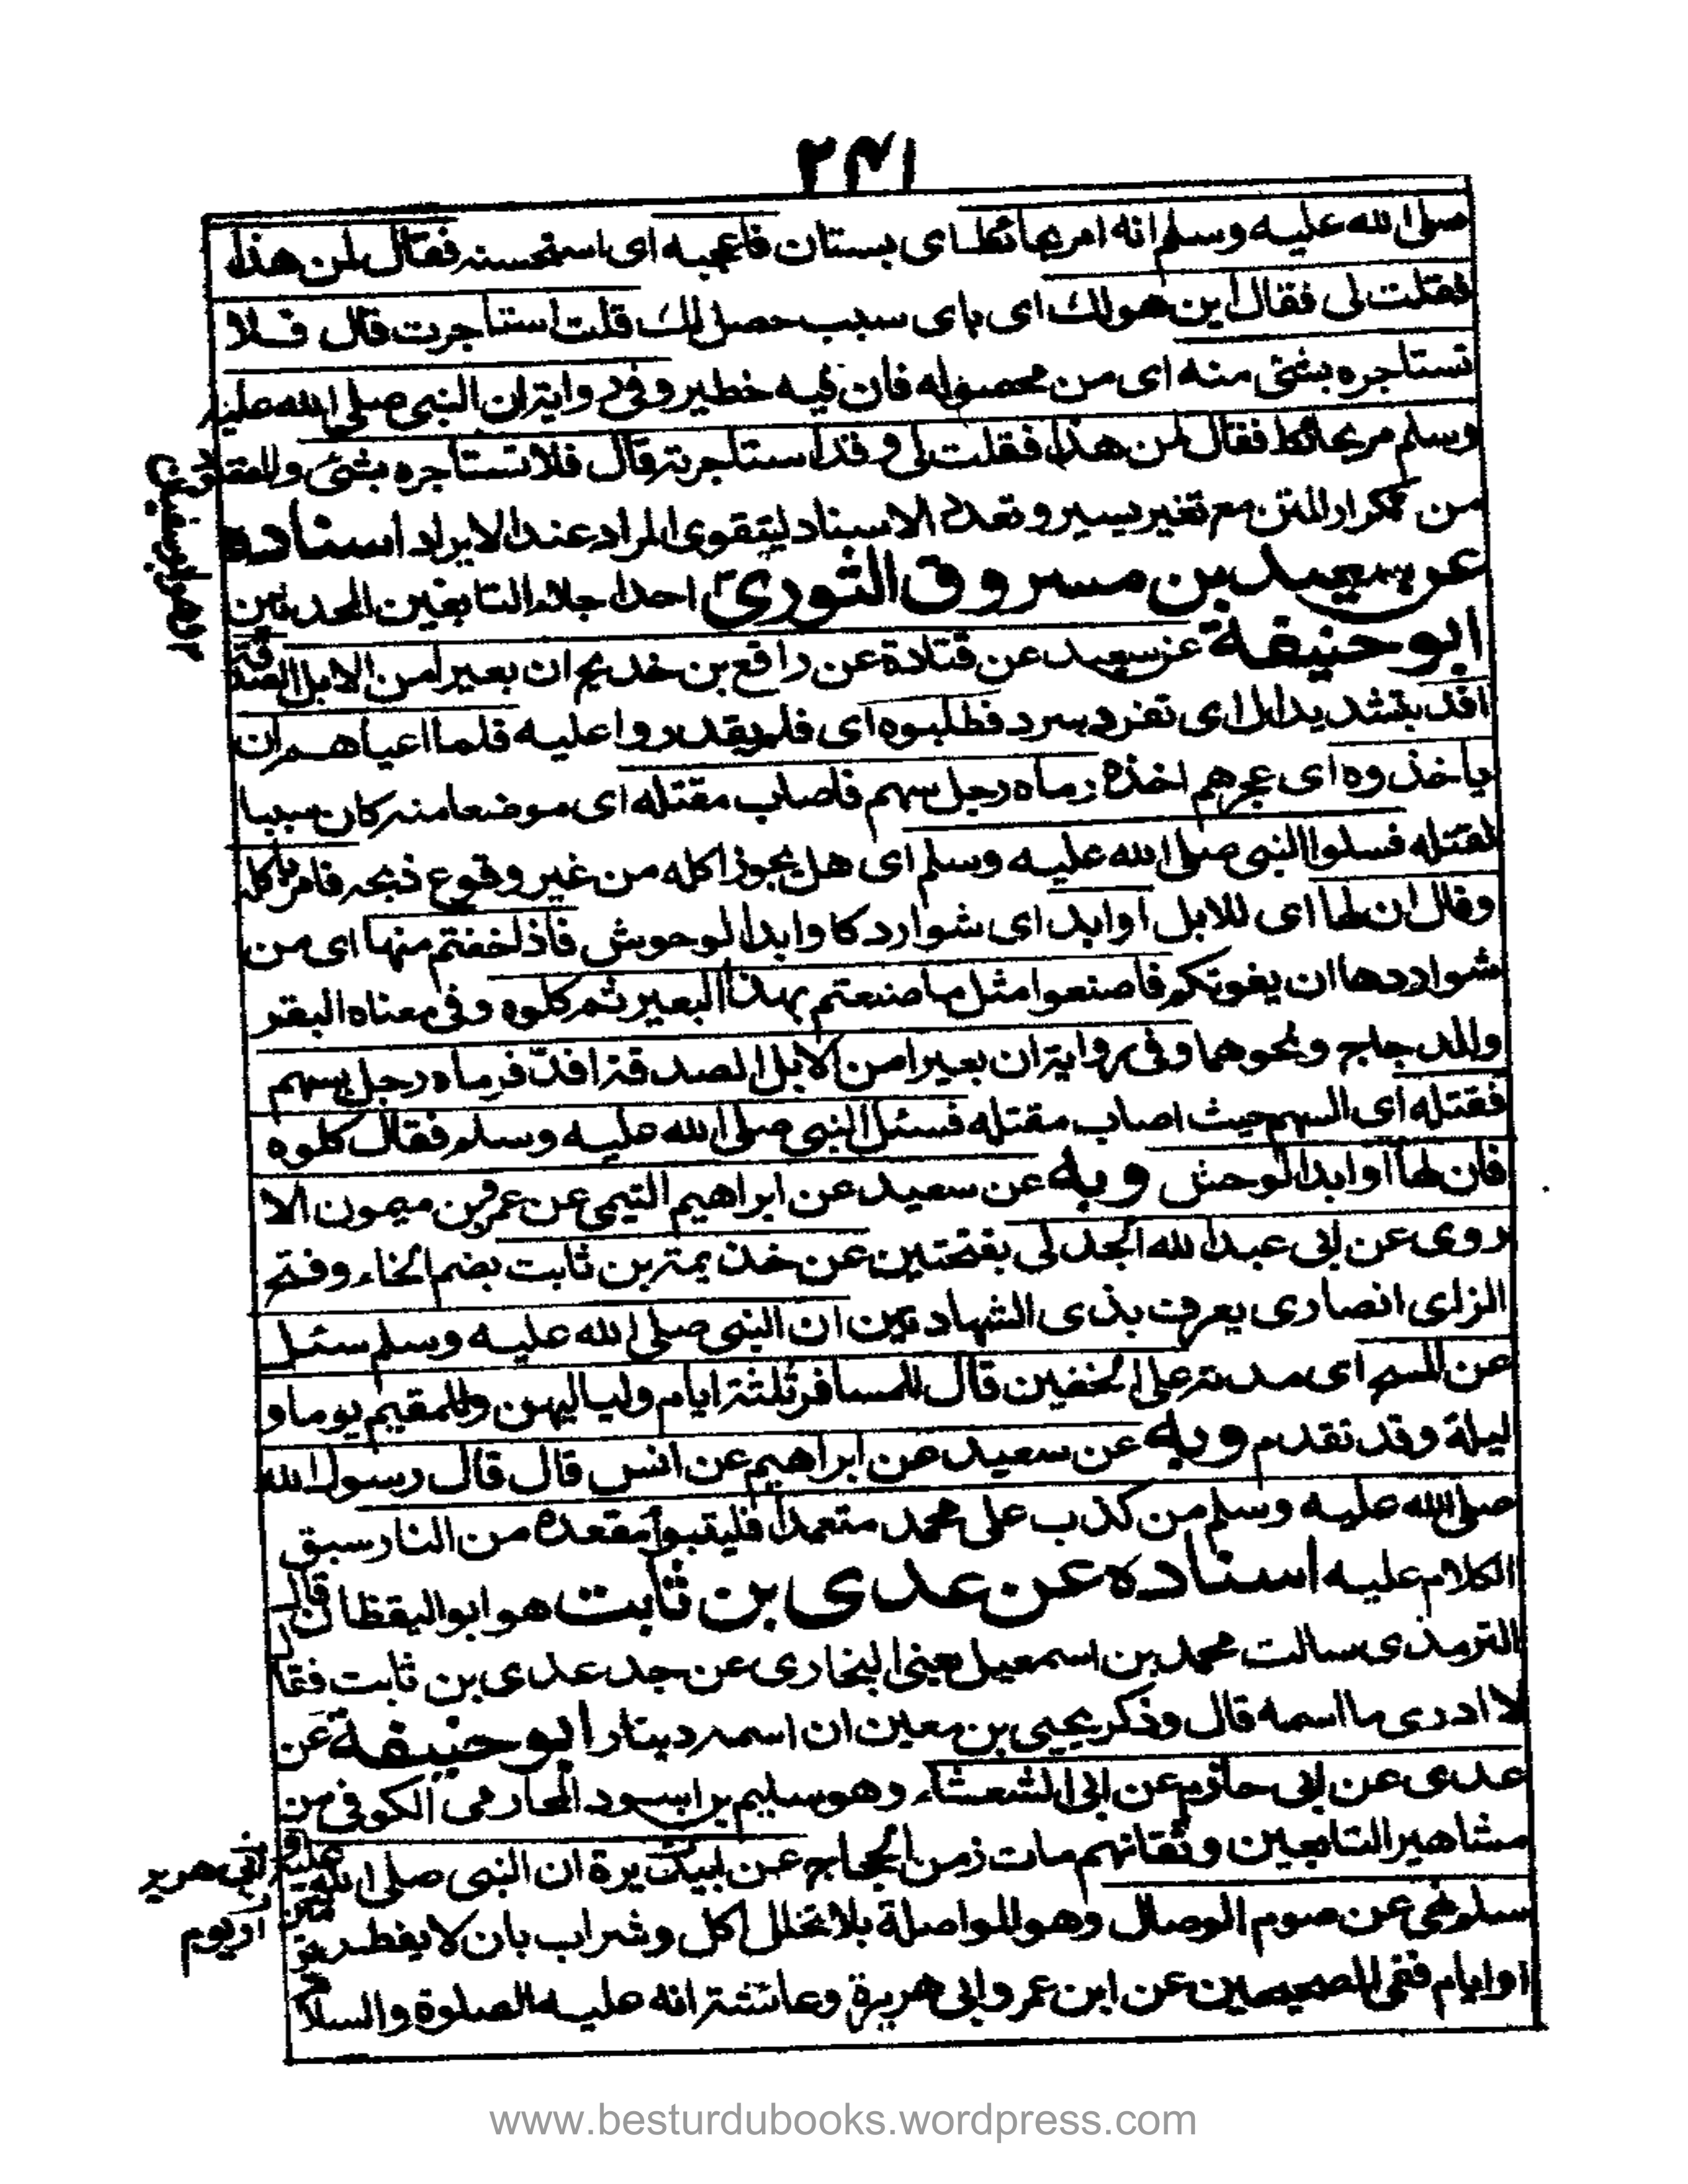 ٢٣١
صلى الله عليه وسلم انه امر بحائط اى بستان فاعجبه اى استحسنه فقال لمن هذا
فقلت لى فقال اين هو لك اى باى سبب حصل لك قلت استاجرت قال فلا
تستاجره بشئ منه اى من محصوله فان فيه خطير وفى رواية ان النبى صلى الله عليه
وسلم مر بحائط فقال لمن هذا فقلت لى وقد استاجرته قال فلا تستاجره بشئ والمقصود
من تكرار المتن مع تغير يسير وتعدد الاسناد ليتقوى المراد عند الايراد اسناده
عن سعيد بن مسروق الثورى احد اجلاء التابعين المحدثين
ابو حنيفة عن سعيد عن قتادة عن رافع بن خديج ان بعيرا من الابل الصدقة
افد بتشديد الدال اى تفرد بسرد فطلبوه اى فلم يقدروا عليه فلما اعياهم ان
ياخذوه اى عجزهم اخذه رماه رجل بسهم فاصاب مقتله اى موضعا منه كان سببا
لقتله فسلوا النبى صلى الله عليه وسلم اى هل يجوز اكله من غير وقوع ذبحه فامر باكله
وقال ان لها اى للابل اوابد اى شوارد كاوابد الوحوش فاذا خفتم منها اى من
شواردها ان يفوتكم فاصنعوا مثل ما صنعتم بهذا البعير ثم كلوه وفى معناه البقر
والدجاج ونحوهما وفى رواية ان بعيرا من الابل الصدقة افد فرماه رجل بسهم
فقتله اى السهم حيث اصاب مقتله فسئل النبى صلى الله عليه وسلم فقال كلوه
فان لها اوابد الوحش وبه عن سعيد عن ابراهيم التيمى عن عمرو بن ميمون الا
روى عن ابى عبد الله الجدلى بفتحتين عن خزيمة بن ثابت بضم الخاء وفتح
الزاى انصارى يعرف بذى الشهادتين ان النبى صلى الله عليه وسلم سئل
عن المسح اى مدته على الخفين قال للمسافر ثلثة ايام ولياليهن وللمقيم يوما و
ليلة وقد تقدم وبه عن سعيد عن ابراهيم عن انس قال قال رسول الله
صلى الله عليه وسلم من كذب على محمد متعمدا فليتبوأ مقعده من النار سبق
الكلام عليه اسناده عن عدى بن ثابت هو ابو اليقظان قال
الترمذى سالت محمد بن اسمعيل يعنى البخارى عن جد عدى بن ثابت فقال
لا ادرى ما اسمه قال وذكر يحيى بن معين ان اسمه دينار ابو حنيفة عن
عدى عن ابى حازم عن ابى الشعشاء وهو سليم بن اسود المحاربى الكوفى من
مشاهير التابعين وثقاتهم مات زمن الحجاج عن ابى هريرة ان النبى صلى الله عليه و
سلم نهى عن صوم الوصال وهو المواصلة بلا تخلل اكل وشراب بان لا يفطر يومين
او ايام ففى الصحيحين عن ابن عمر وابى هريرة وعائشة انه عليه الصلوة والسلام
ابى هرير
او يوم
www.besturdubooks.wordpress.com